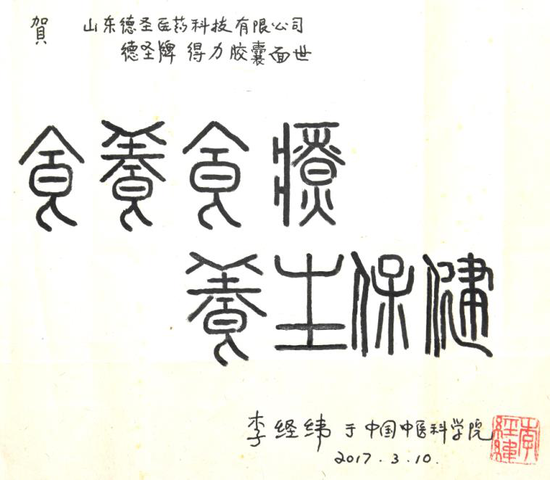 賀 山东德圣医药科技有限公司
德圣牌 得力胶囊面世
食養食療
養生保健
李经纬 于中国中医科学院
2017.3.10.
李
經緯